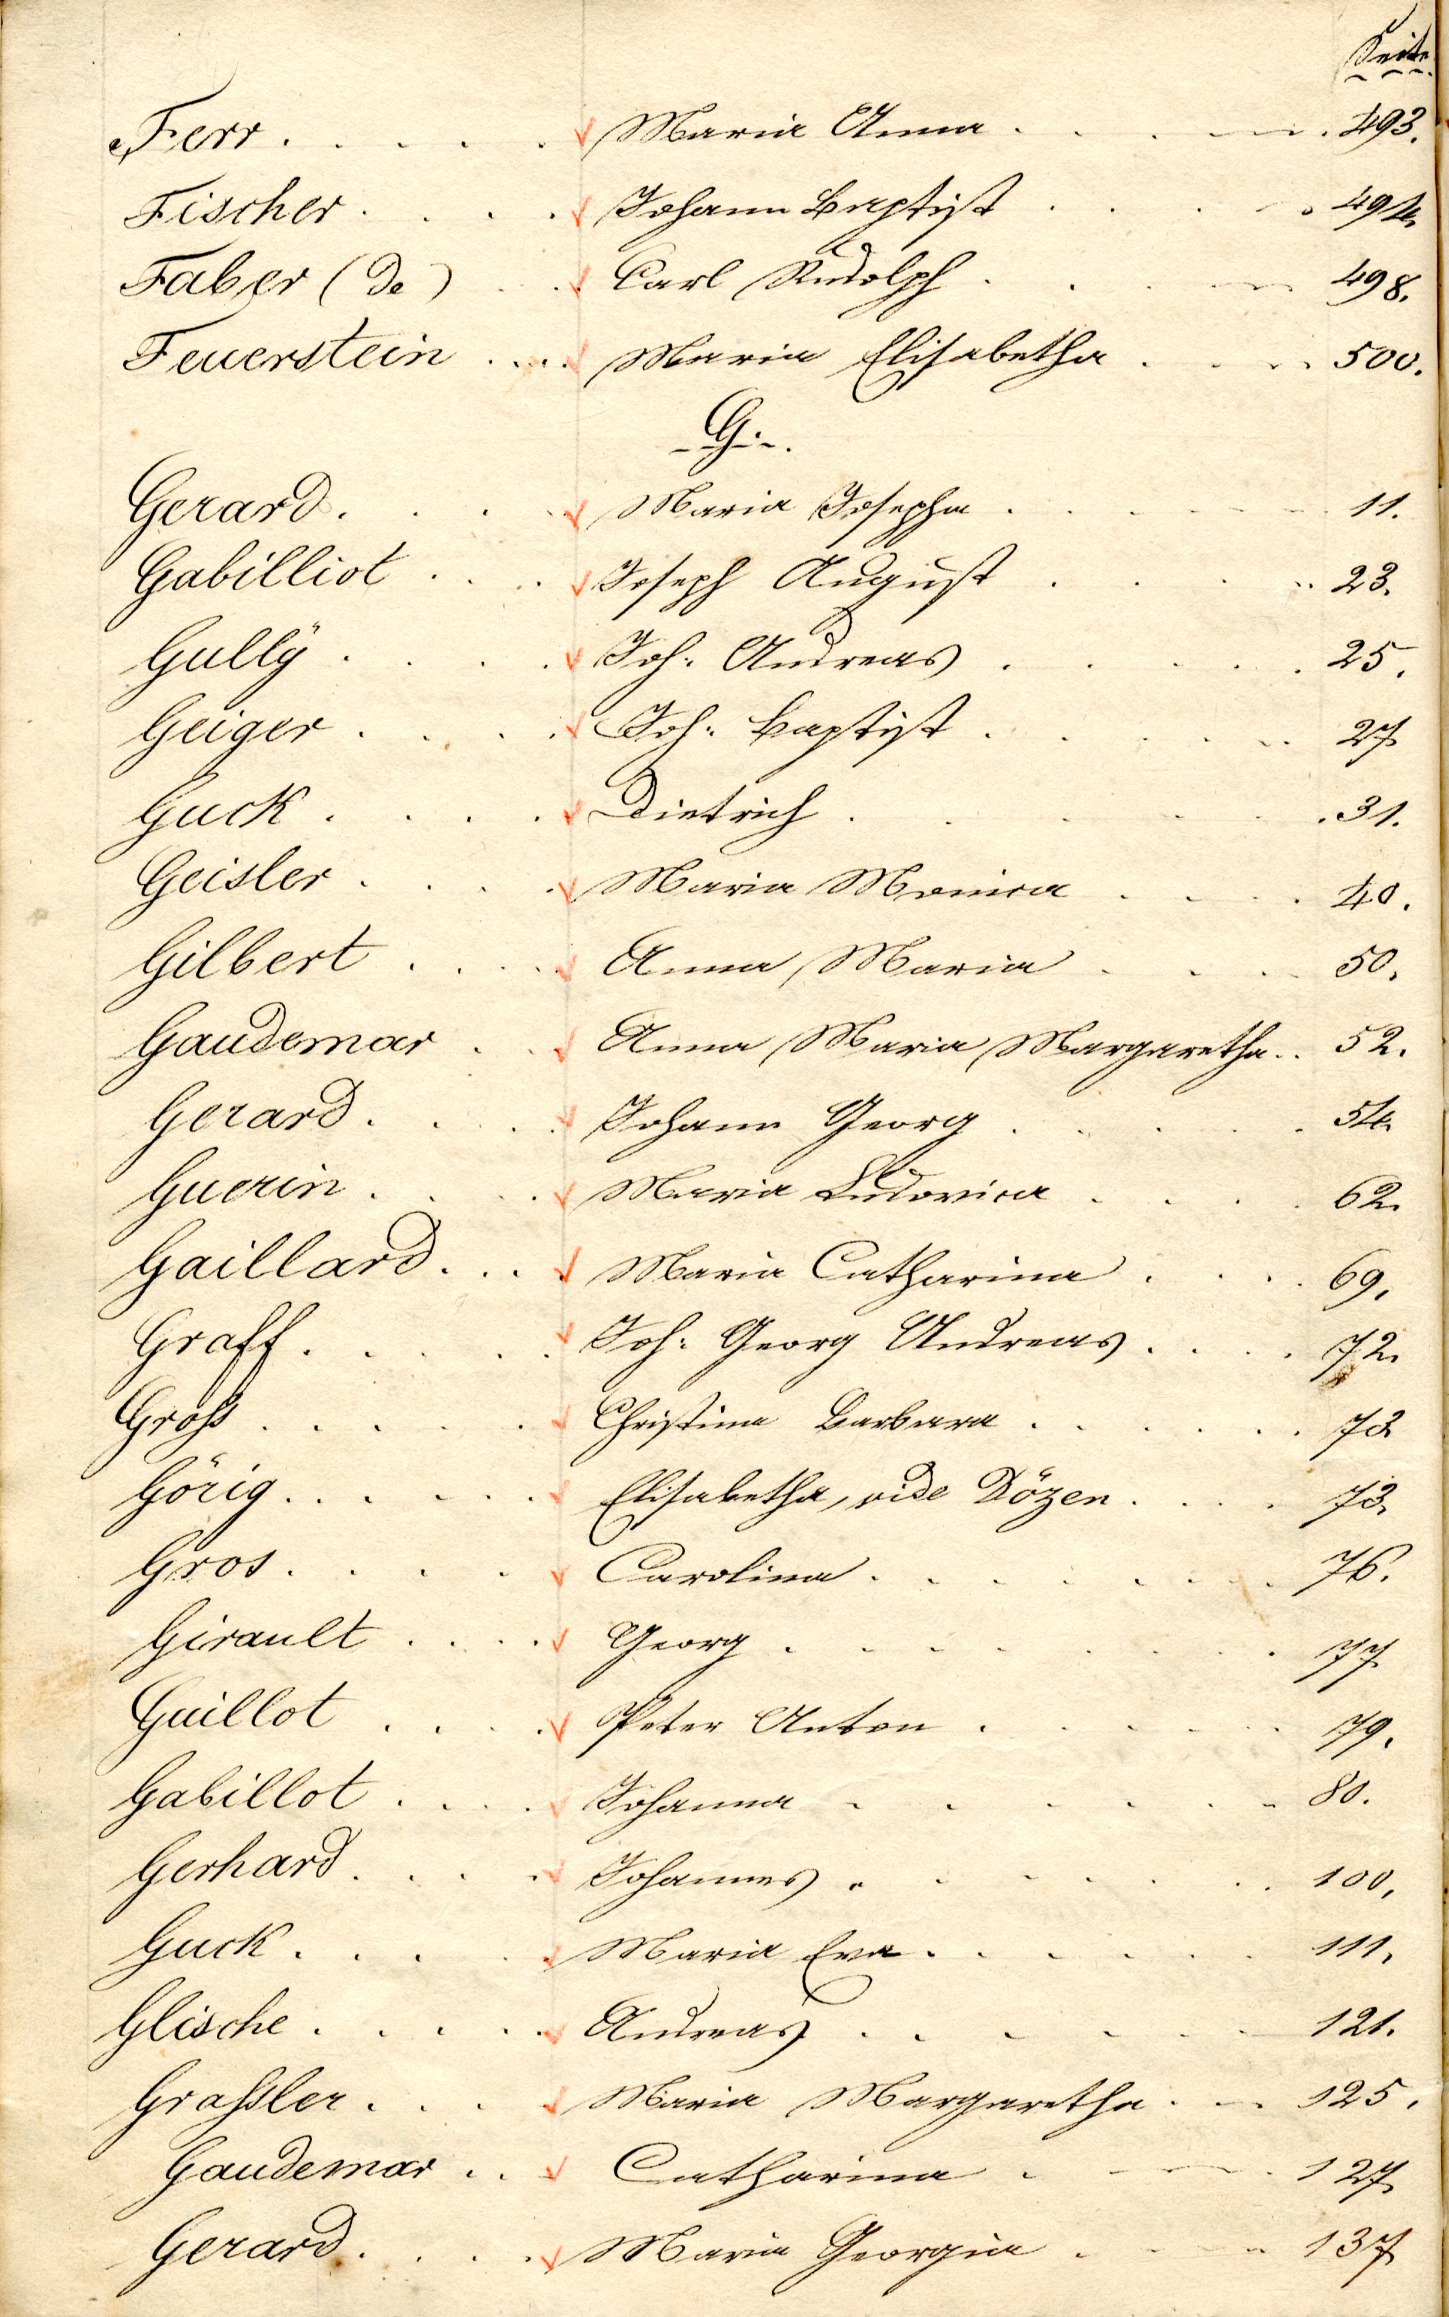 Seite
Ferr . . . . . Maria Anna . . . . 493.
Fischer . . . . Johann Baptist . . . . 494.
Faber (de) . . Carl Rudolph . . . . 498.
Feuerstein . . . Maria Elisabetha . . . . 500.
G.
Gerard . . . . Maria Josepha . . . . 11.
Gabilliot . . . Joseph August . . . . 23.
Gullÿ . . . . Joh: Andreas . . . . 25.
Geiger . . . . Joh: Baptist . . . . 27.
Guck . . . . Dietrich . . . . 31.
Geisler . . . . Maria Monica . . . . 40.
Gilbert . . . . Anna Maria . . . . 50.
Gaudemar . . . Anna Maria Margaretha . . 52.
Gerard . . . . Johann Georg . . . . 54.
Guerin . . . . Maria Ludovica . . . . 62.
Gaillard . . . . Maria Catharina . . . . 69.
Graff . . . . . Joh: Georg Andreas . . . . 72.
Groß . . . . . Christina Barbara . . . . 73
Görig . . . . . Elisabetha, vide Dözen . . . . 73.
Gros . . . . Carolina . . . . 76.
Girault . . . . Georg . . . . 77.
Guillot . . . . Peter Anton . . . . 79.
Gabillot . . . . Johanna . . . . 80.
Gerhard . . . . Johannes . . . . 100.
Guck . . . . . Maria Eva . . . . 111.
Glische . . . . . Andreas . . . . 121.
Graßler . . . . Maria Margaretha . . . 125.
Gaudemar . . . Catharina . . . . 127.
Gerard . . . . Maria Georgia . . . . 137